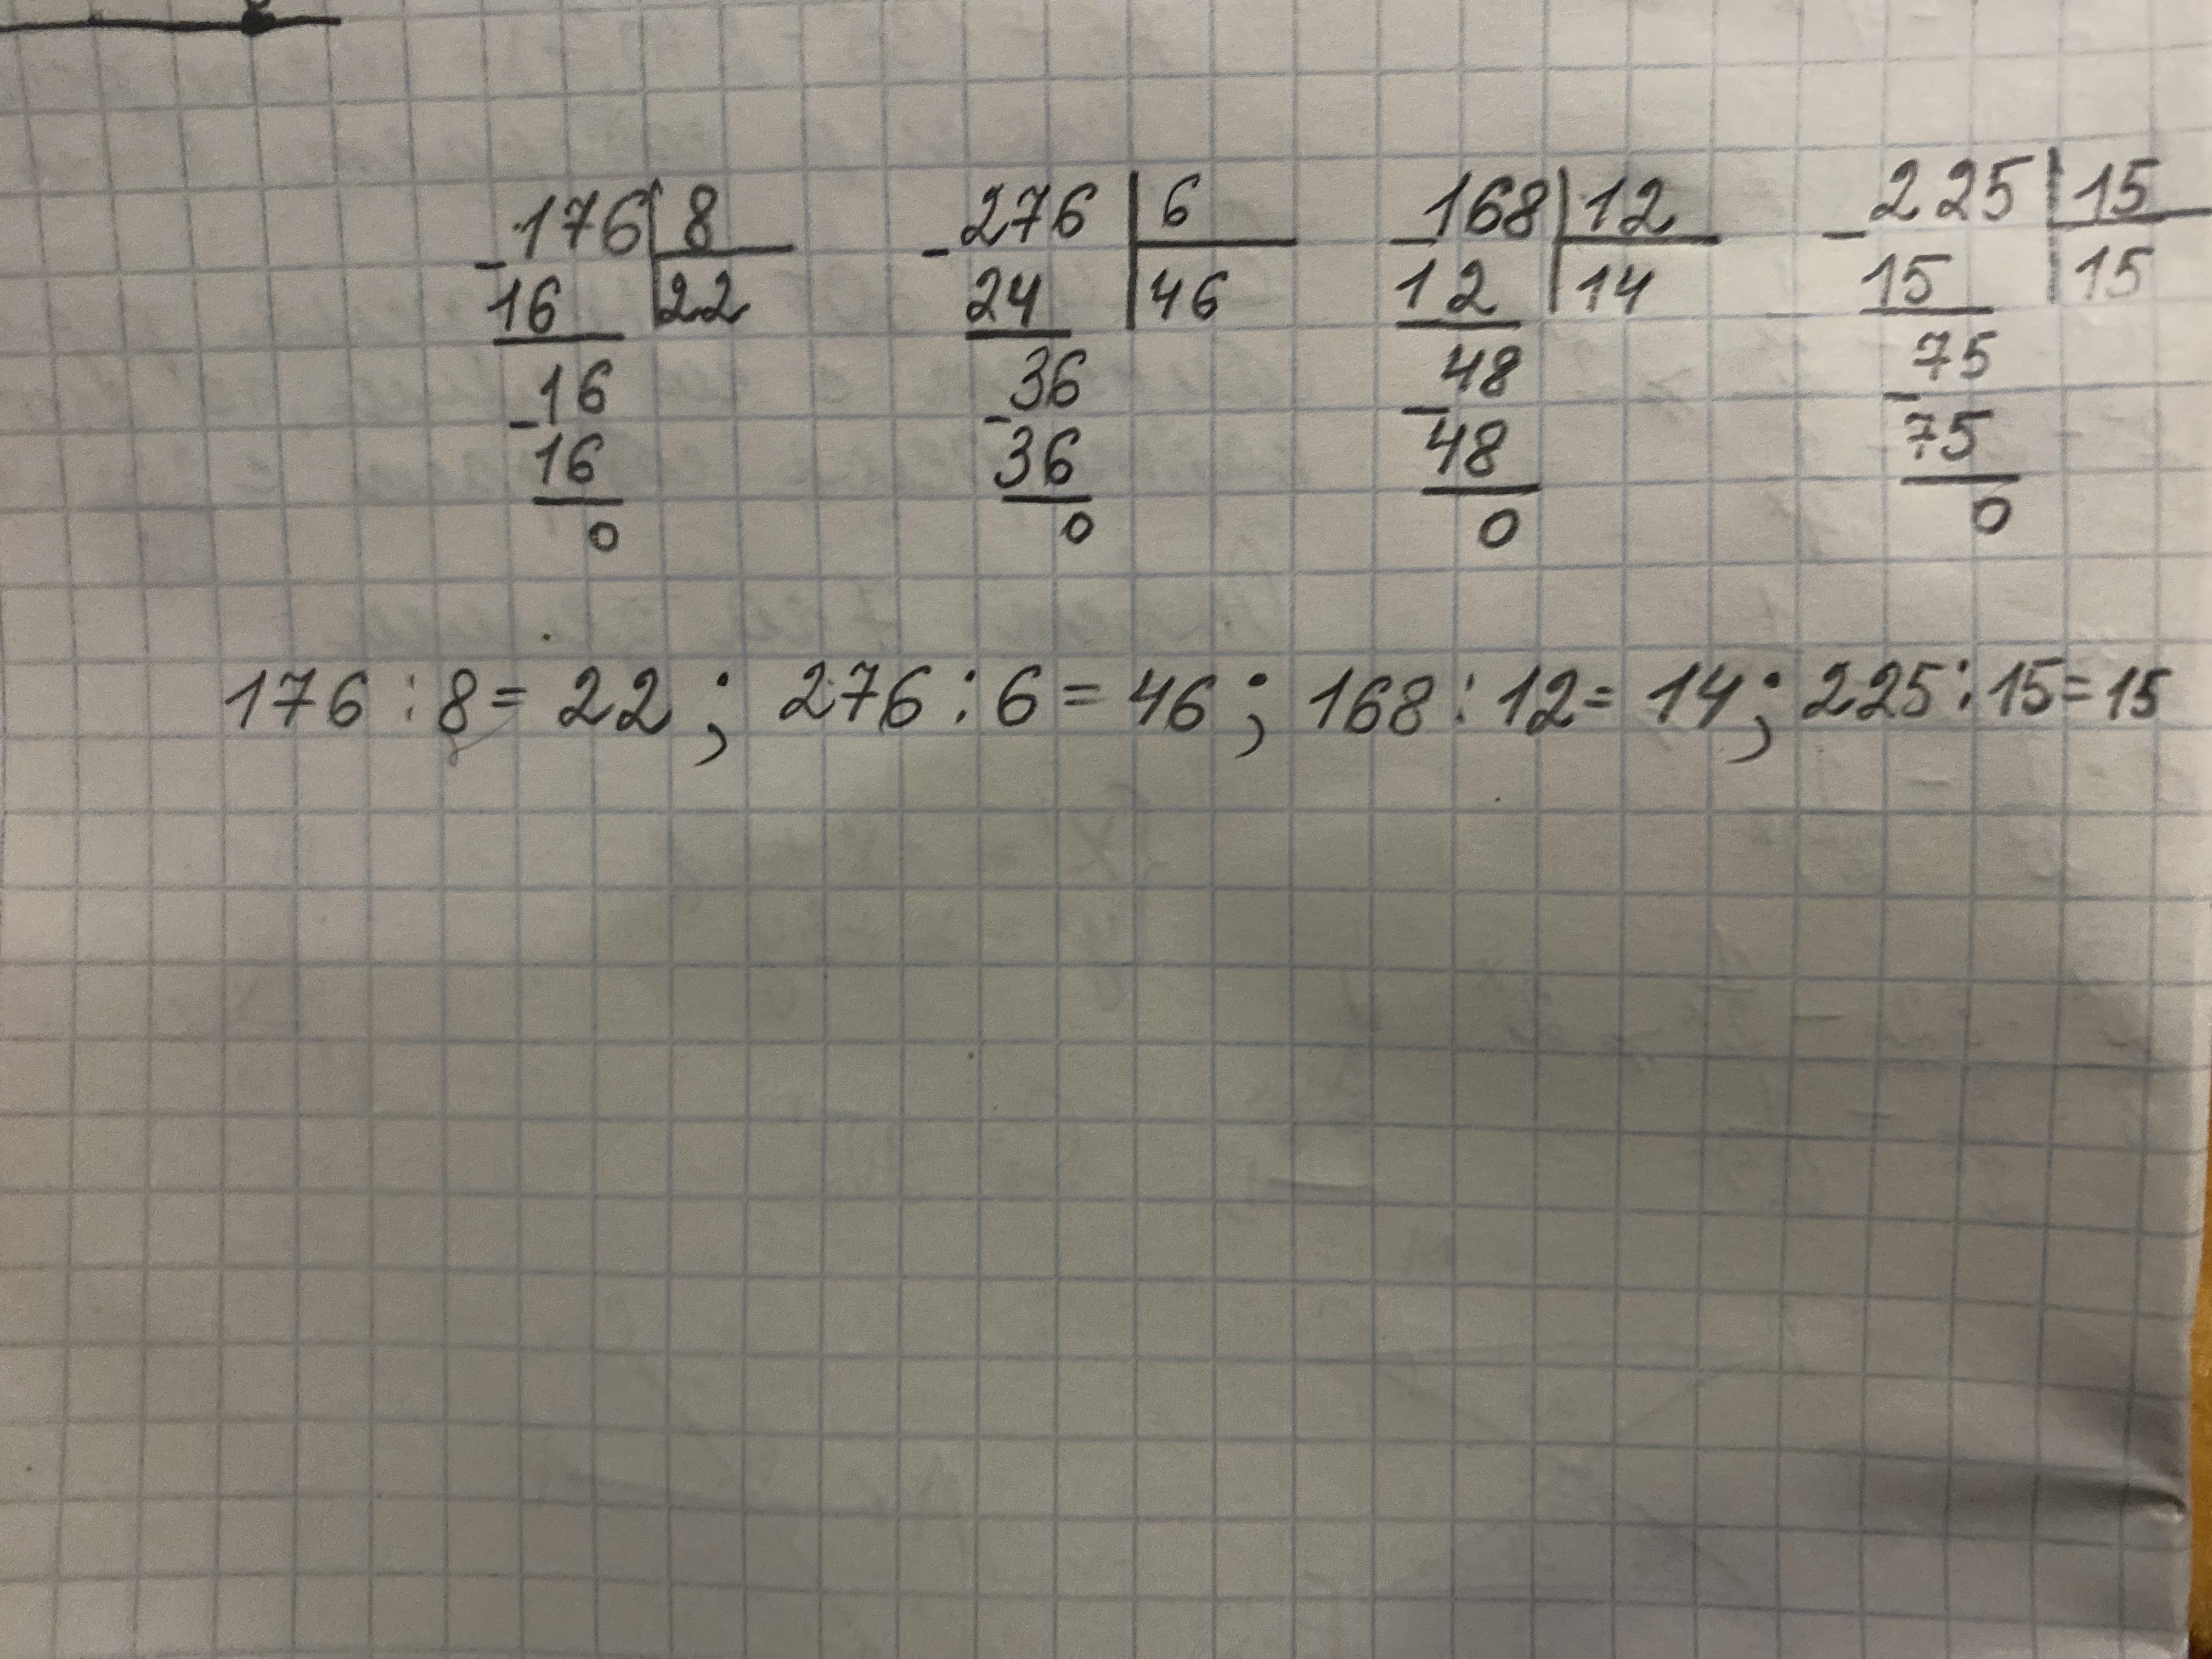 -176|8 -276|6 -168|12 -225|15
16 |22 24 |46 12 |14 15 |15
-16 -36 -48 -75
16 36 48 75
0 0 0 0
176 : 8 = 22 ; 276 : 6 = 46 ; 168 : 12 = 14 ; 225 : 15 = 15